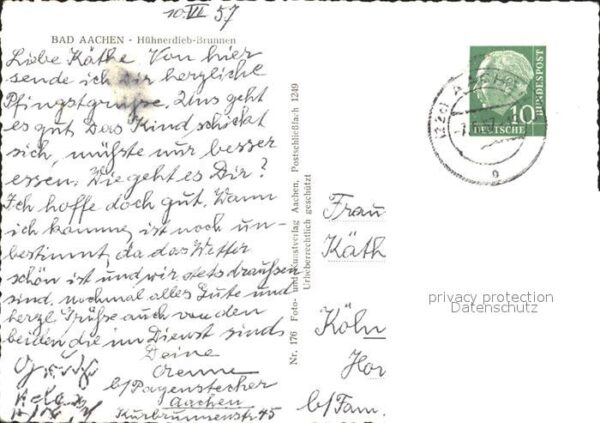 10.VI 57
BAD AACHEN - Hühnerdieb-Brunnen
Liebe Käthe Von hier
sende ich Dir herzliche
Pfingstgrüße. Uns geht
es gut. Das Kind schickt
sich, müßte nur besser
essen. Wie geht es Dir?
Ich hoffe doch gut. Wann
ich komme, ist noch un-
bestimmt, da das Wetter
schön ist und wir stets draußsen
sind. nochmal alles Gute und
herzl. Grüße auch von den
beiden die im Dienst sind
Deine
b/ Pagenstecher
Aachen
Kurbrunnenstr 45
Nr. 176 Foto- und Kunstverlag Aachen, Postschließfach 1249
Urheberrechtlich geschützt
10
DEUTSCHE
BUNDESPOST
(22c) AACHEN
Frau
Käth
Köln
Hor
b/ Fam.
privacy protection
Datenschutz